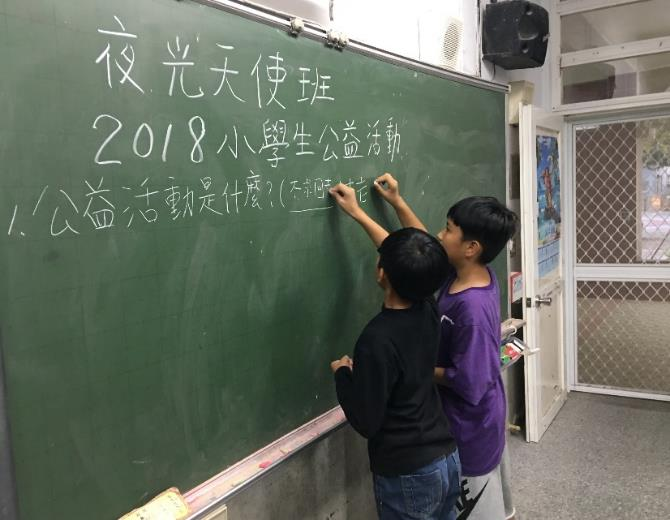 夜光天使班
2018小學生公益活動
1.公益活動是什麼?(不求